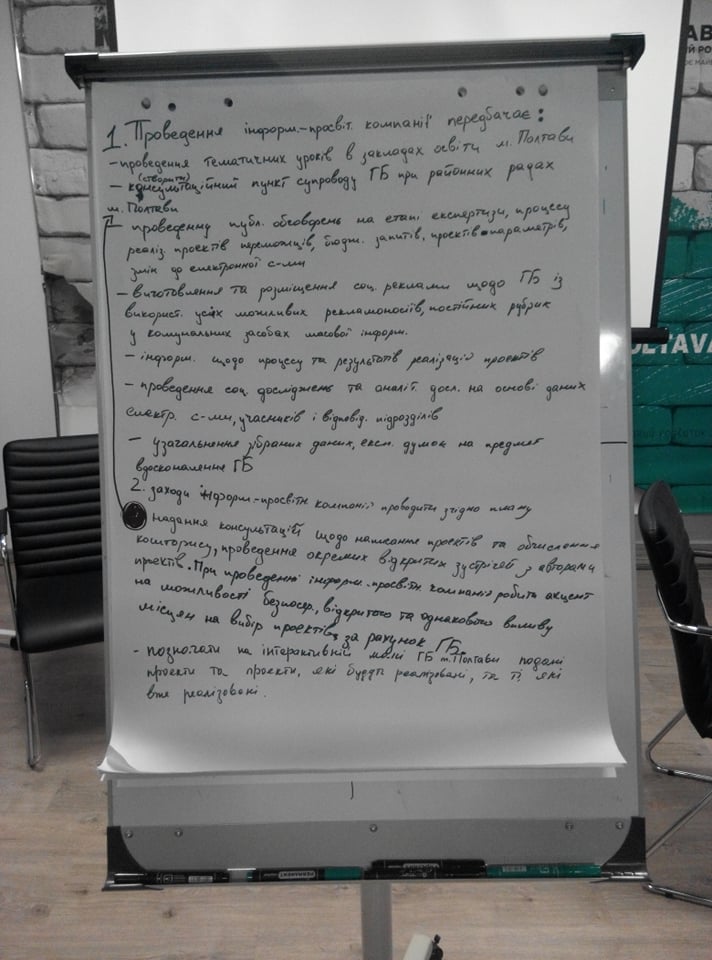 1. Проведення інформ.-просвіт. компанії передбачає:
- проведення тематичних уроків в закладах освіти м. Полтави
(створити)
- консультаційний пункт супроводу ГБ при районних радах
м. Полтави
- проведенну публ. обговорень на етапі експертизи, процесу
реаліз. проектів переможців, бюдж. запитів, проектів параметрів,
змін до електронної с-ми
- виготовлення та розміщення соц. реклами щодо ГБ із
використ. усіх можливих рекламоносіїв, постійних рубрик
у комунальних засобах масової інформ.
- інформ. щодо процесу та результатів реалізації проектів
- проведення соц. досліджень та аналіт. досл. на основі даних
електр. с-ми, учасників і відповід. підрозділів
- узагальнення зібраних даних, експ. думок на предмет
вдосконалення ГБ
2. заходи інформ.-просвітн компанії проводити згідно плану
надання консультацій щодо написання проектів та обчислення
кошторису, проведення окремих відкритих зустрічей з авторами
проектів. При проведенні інформ.-просвітн компанії робити акцент
на можливості безпосер, відкритого та однакового впливу
місцян на вибір проектів за рахунок ГБ.
- позначати на інтерактивній мапі ГБ м. Полтави подані
проекти та проекти, які будуть реалізовані, та ті які
вже реалізовані.
АВ
ИЙ РО
LTAVA
PERMANENT